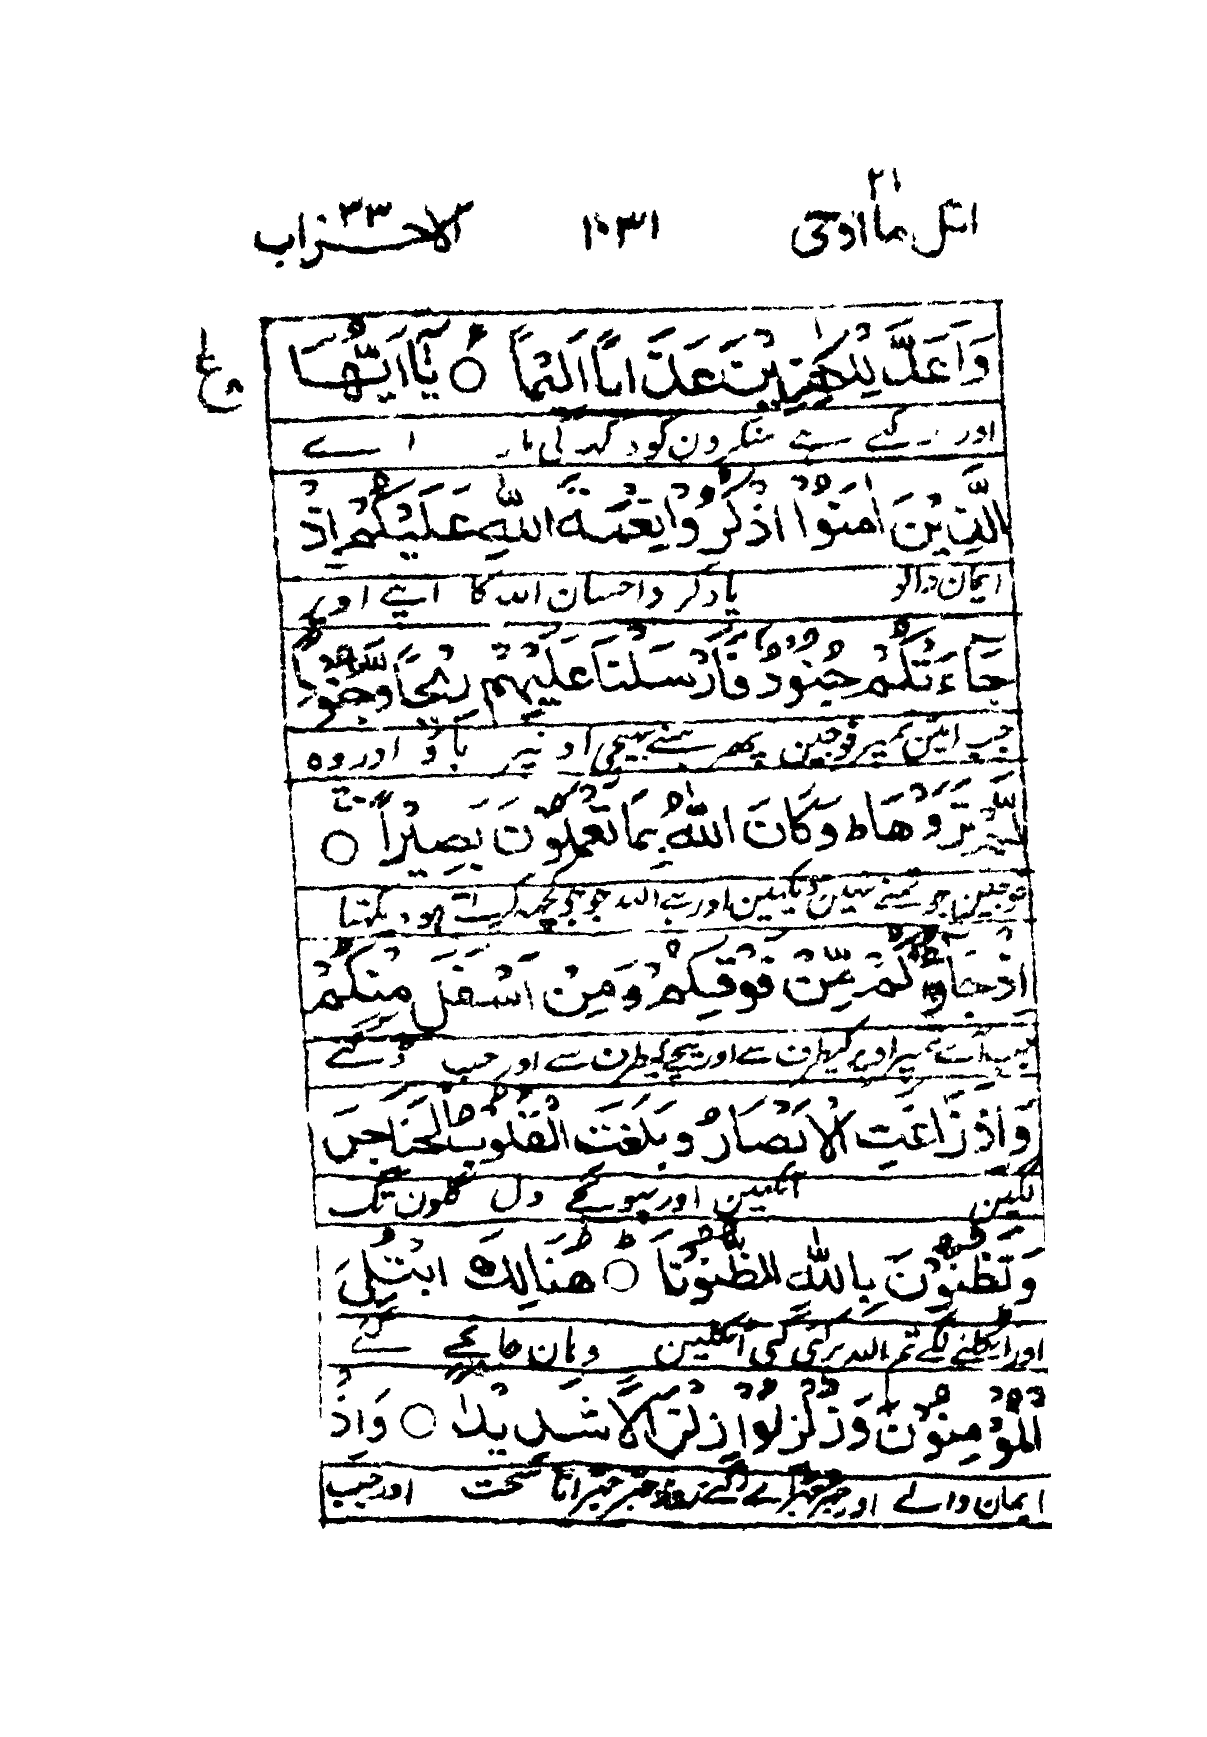 اتل ما اوحی ۲۱ ۱۰۳۱ الاحزاب ۳۳
وَاَعَدَّ لِلْكٰفِرِيْنَ عَذَابًا اَلِيْمًا ○ يٰٓاَيُّهَا
اور رکھی ہے منکرون کو دکھہ کی مار اے
الَّذِيْنَ اٰمَنُوا اذْكُرُوْا نِعْمَةَ اللّٰهِ عَلَيْكُمْ اِذْ
ایمان والو یاد کرو احسان اللہ کا اپنے اوپر
جَآءَتْكُمْ جُنُوْدٌ فَاَرْسَلْنَا عَلَيْهِمْ رِيْحًا وَّجُنُوْدًا
جب آئین تمپر فوجین پھر ہمنے بھیجی اونپر باؤ اور وہ
لَّمْ تَرَوْهَا ط وَكَانَ اللّٰهُ بِمَا تَعْمَلُوْنَ بَصِيْرًا ○
فوجین جو تمنے نہین دیکھین اور ہے اللہ جو کچھہ کرتے ہو دیکھتا
اِذْ جَآءُوْكُمْ مِّنْ فَوْقِكُمْ وَمِنْ اَسْفَلَ مِنْكُمْ
جب آئے تمپر اوپر کیطرف سے اور نیچے کیطرف سے اور جب ڈگنے
وَاِذْ زَاغَتِ الْاَبْصَارُ وَبَلَغَتِ الْقُلُوْبُ الْحَنَاجِرَ
لگین آنکھین اور پہونچے دل گلون تک
وَتَظُنُّوْنَ بِاللّٰهِ الظُّنُوْنَا ○ هُنَالِكَ ابْتُلِيَ
اور اٹکلنے لگے تم اللہ پر کئی کئی اٹکلین وہان جانچے گئے
الْمُؤْمِنُوْنَ وَزُلْزِلُوْا زِلْزَالًا شَدِيْدًا ○ وَاِذْ
ایمان والے اور سخت اور جب